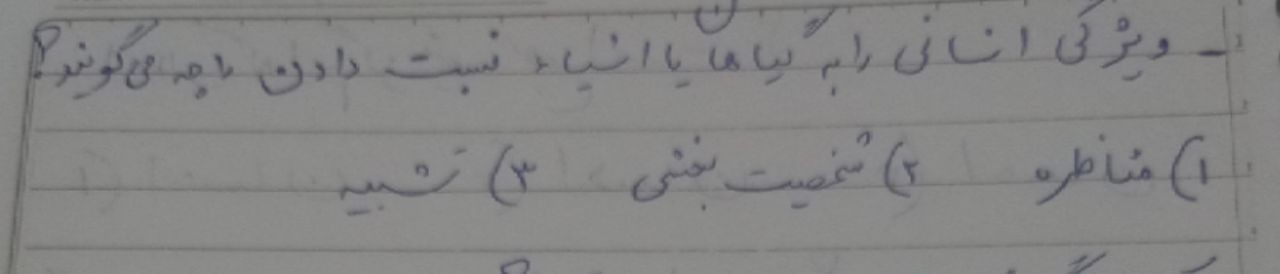 - ویژگی انسانی را به گیاهان یا اشیاء نسبت دادن را چه می‌گویند؟
۱) مناظره ۲) شخصیت بخشی ۳) تشبیه